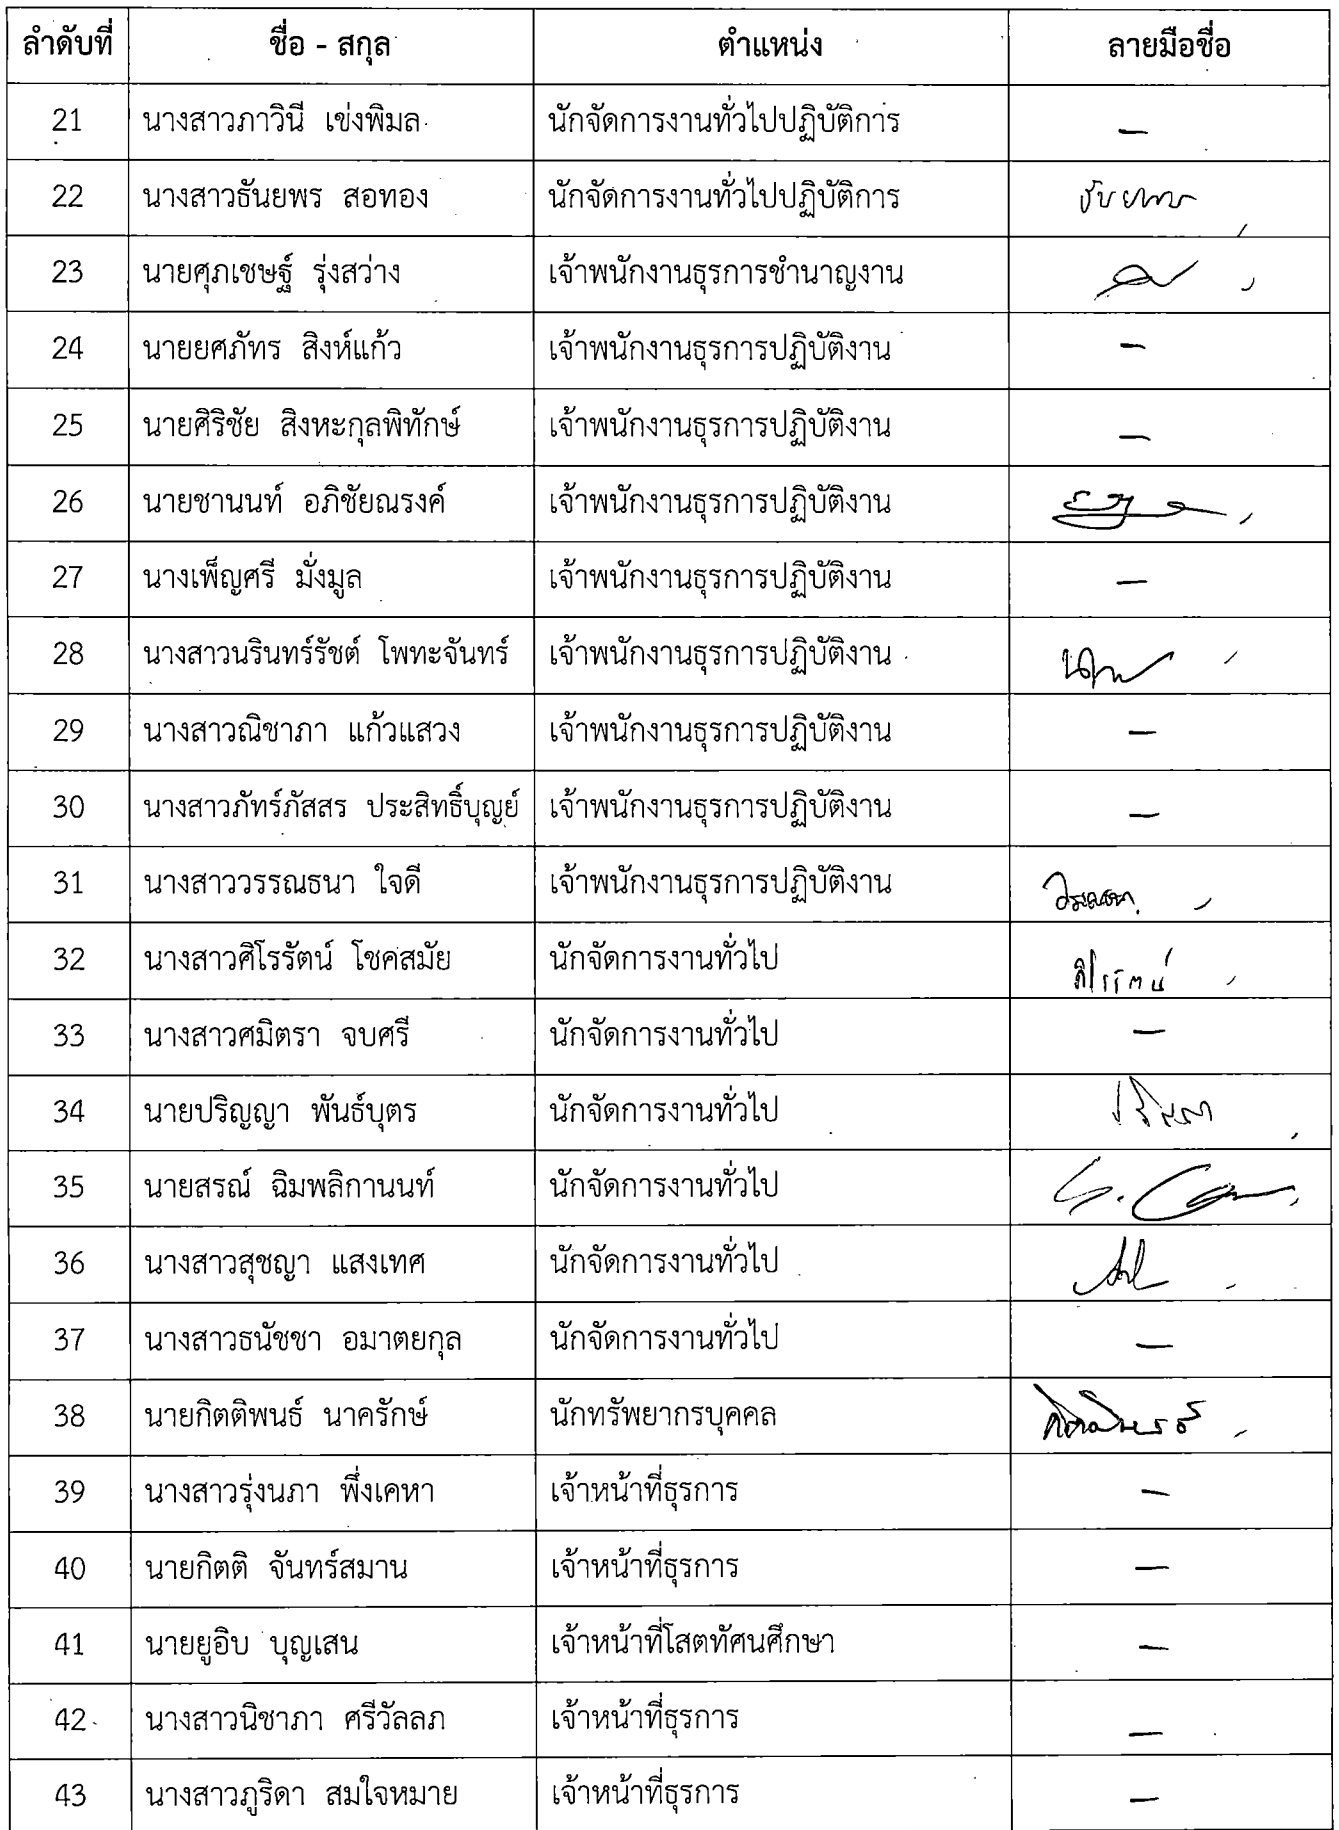 ลำดับที่ ชื่อ - สกุล ตำแหน่ง ลายมือชื่อ
21 นางสาวภาวินี เข่งพิมล นักจัดการงานทั่วไปปฏิบัติการ –
22 นางสาวธันยพร สอทอง นักจัดการงานทั่วไปปฏิบัติการ ธันยพร
23 นายศุภเชษฐ์ รุ่งสว่าง เจ้าพนักงานธุรการชำนาญงาน
24 นายยศภัทร สิงห์แก้ว เจ้าพนักงานธุรการปฏิบัติงาน –
25 นายศิริชัย สิงหะกุลพิทักษ์ เจ้าพนักงานธุรการปฏิบัติงาน –
26 นายชานนท์ อภิชัยณรงค์ เจ้าพนักงานธุรการปฏิบัติงาน
27 นางเพ็ญศรี มั่งมูล เจ้าพนักงานธุรการปฏิบัติงาน –
28 นางสาวนรินทร์รัชต์ โพทะจันทร์ เจ้าพนักงานธุรการปฏิบัติงาน
29 นางสาวณิชาภา แก้วแสวง เจ้าพนักงานธุรการปฏิบัติงาน –
30 นางสาวภัทร์ภัสสร ประสิทธิ์บุญย์ เจ้าพนักงานธุรการปฏิบัติงาน –
31 นางสาววรรณธนา ใจดี เจ้าพนักงานธุรการปฏิบัติงาน วรรณธนา
32 นางสาวศิโรรัตน์ โชคสมัย นักจัดการงานทั่วไป ศิโรรัตน์
33 นางสาวศมิตรา จบศรี นักจัดการงานทั่วไป –
34 นายปริญญา พันธ์บุตร นักจัดการงานทั่วไป ปริญญา
35 นายสรณ์ ฉิมพลิกานนท์ นักจัดการงานทั่วไป
36 นางสาวสุชญา แสงเทศ นักจัดการงานทั่วไป
37 นางสาวธนัชชา อมาตยกุล นักจัดการงานทั่วไป –
38 นายกิตติพนธ์ นาครักษ์ นักทรัพยากรบุคคล กิตติพนธ์
39 นางสาวรุ่งนภา พึ่งเคหา เจ้าหน้าที่ธุรการ –
40 นายกิตติ จันทร์สมาน เจ้าหน้าที่ธุรการ –
41 นายยูอิบ บุญเสน เจ้าหน้าที่โสตทัศนศึกษา –
42 นางสาวนิชาภา ศรีวัลลภ เจ้าหน้าที่ธุรการ –
43 นางสาวภูริดา สมใจหมาย เจ้าหน้าที่ธุรการ –